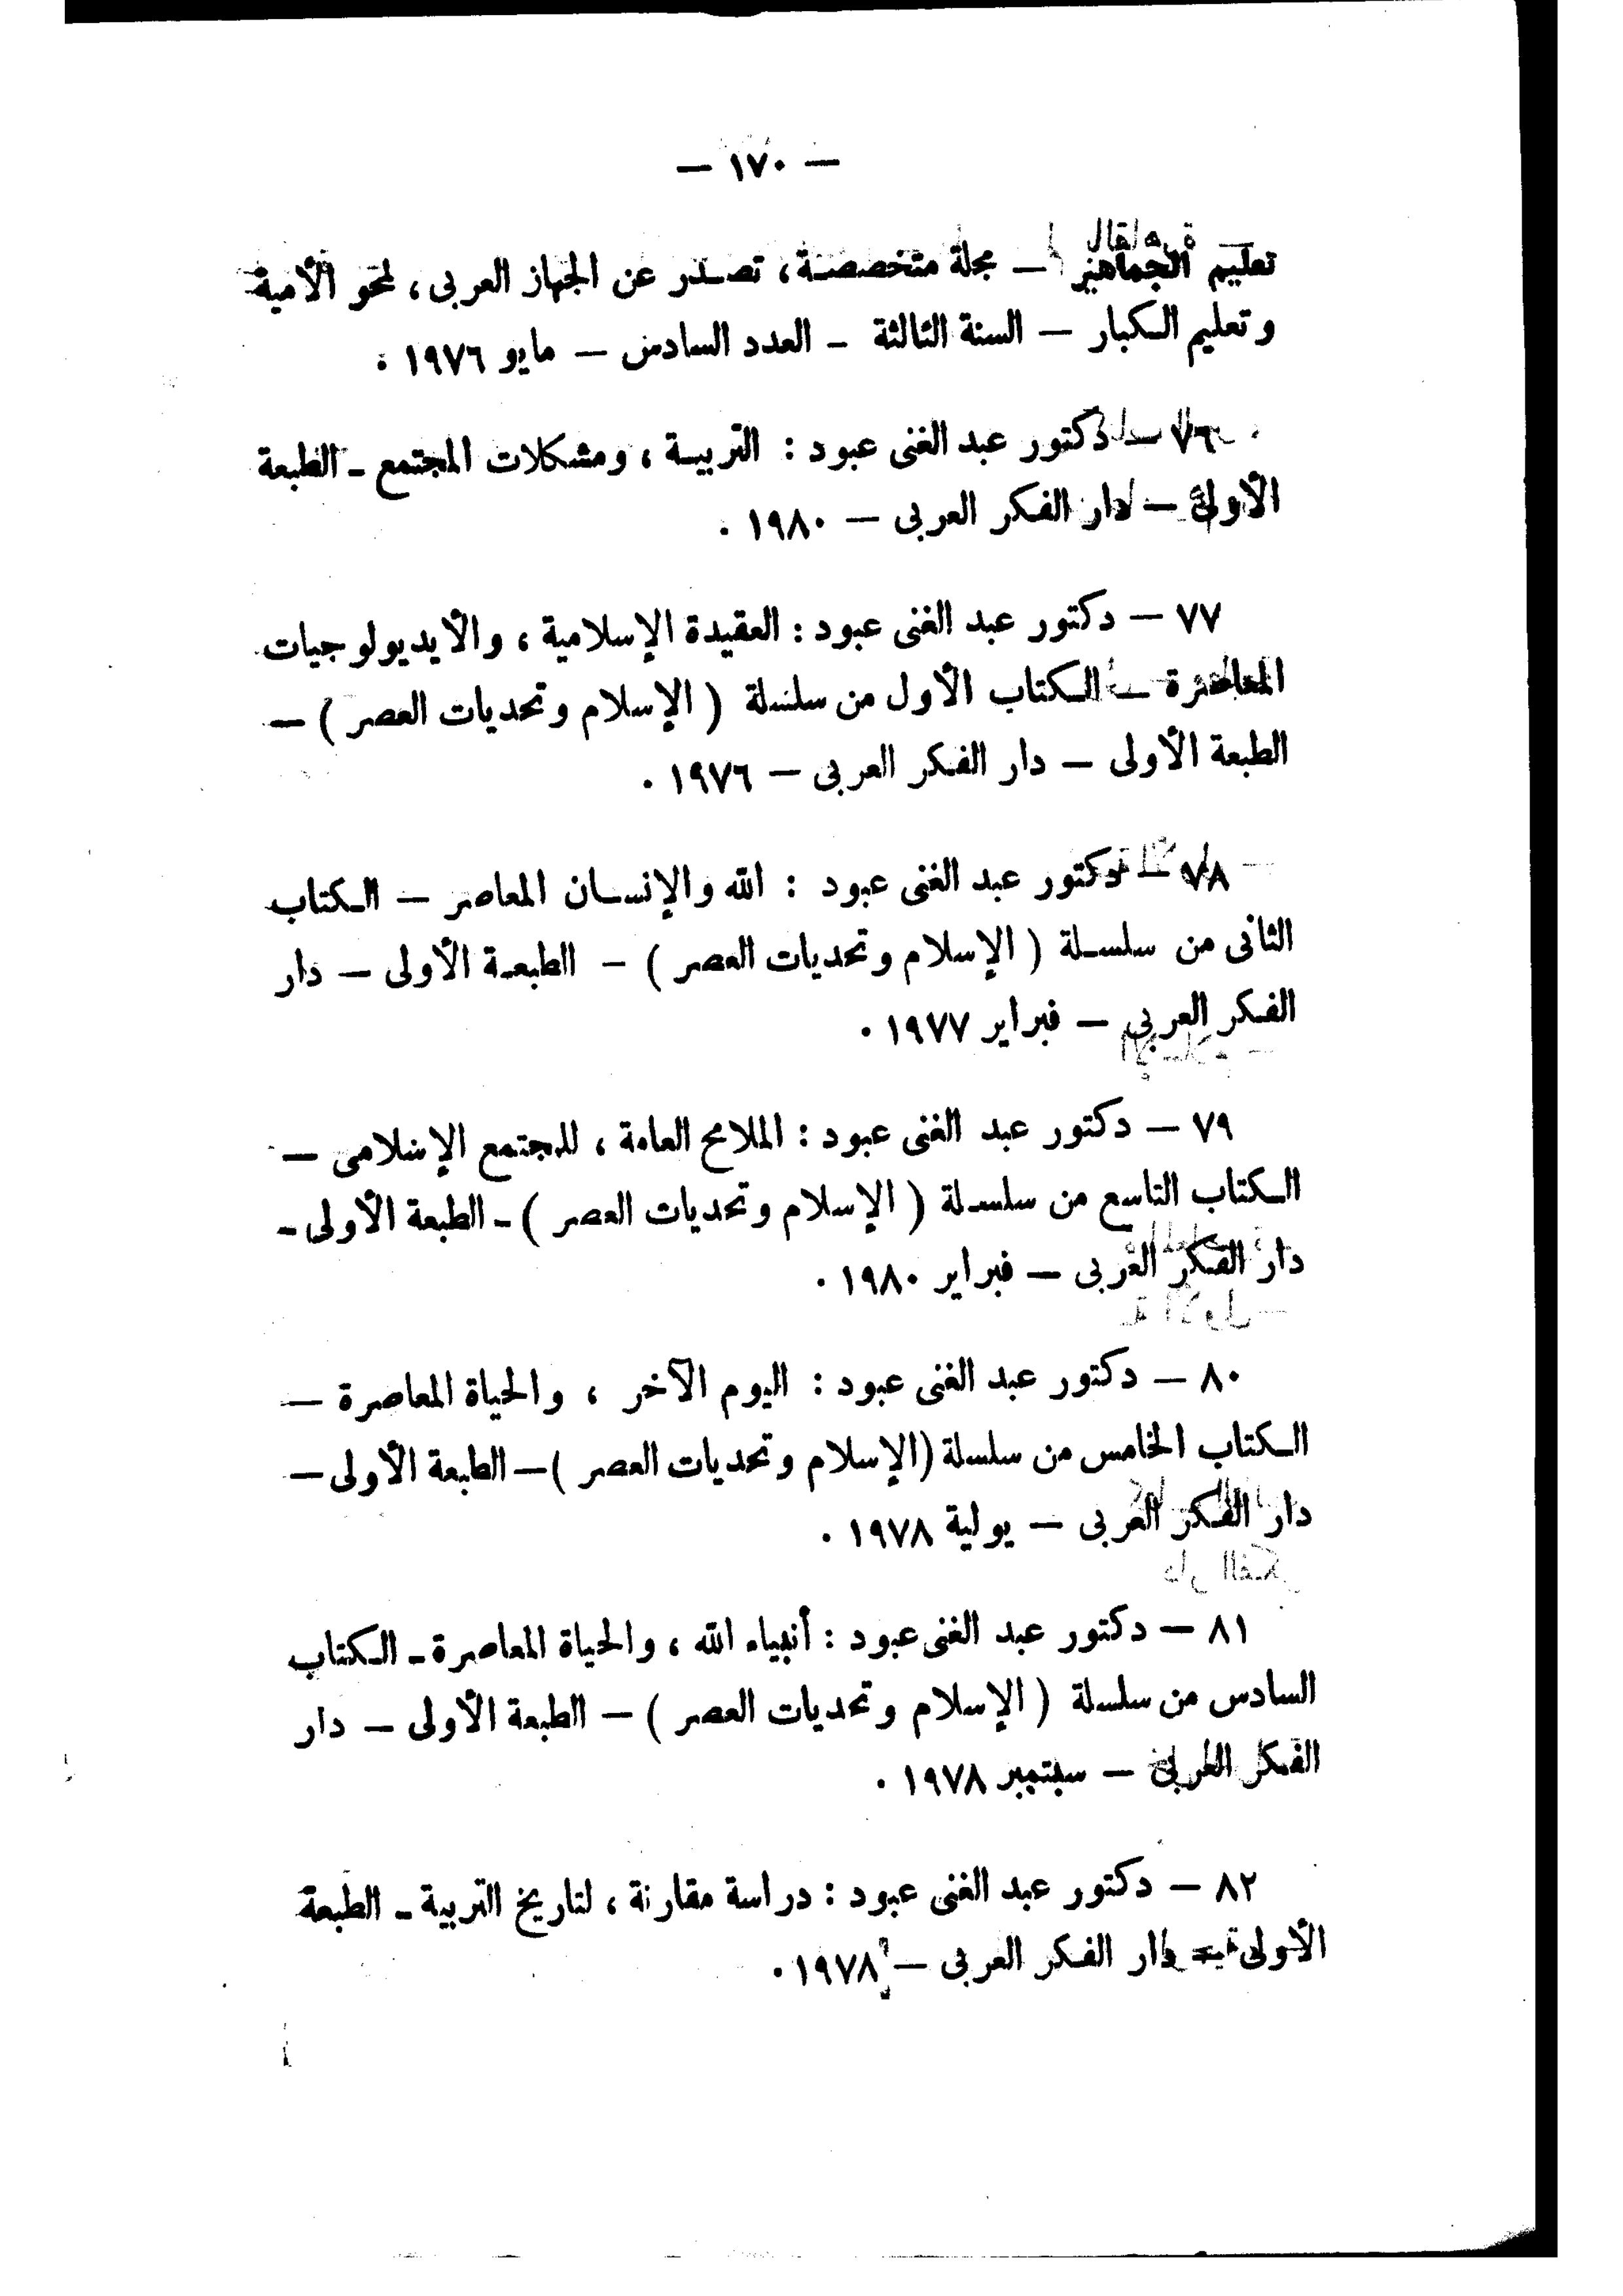 — ١٧٠ —
تعليم الجماهير — مجلة متخصصة ، تصدر عن الجهاز العربى ، لمحو الأمية
وتعليم الكبار — السنة الثالثة — العدد السادس — مايو ١٩٧٦ .
٧٦ — دكتور عبد الغنى عبود : التربية ، ومشكلات المجتمع — الطبعة
الأولى — دار الفكر العربى — ١٩٨٠ .
٧٧ — دكتور عبد الغنى عبود : العقيدة الإسلامية ، والأيديولوجيات
المعاصرة — الكتاب الأول من سلسلة ( الإسلام وتحديات العصر ) —
الطبعة الأولى — دار الفكر العربى — ١٩٧٦ .
٧٨ — دكتور عبد الغنى عبود : الله والإنسان المعاصر — الكتاب
الثانى من سلسلة ( الإسلام وتحديات العصر ) — الطبعة الأولى — دار
الفكر العربى — فبراير ١٩٧٧ .
٧٩ — دكتور عبد الغنى عبود : الملامح العامة ، للمجتمع الإسلامى —
الكتاب التاسع من سلسلة ( الإسلام وتحديات العصر ) — الطبعة الأولى —
دار الفكر العربى — فبراير ١٩٨٠ .
٨٠ — دكتور عبد الغنى عبود : اليوم الآخر ، والحياة المعاصرة —
الكتاب الخامس من سلسلة ( الإسلام وتحديات العصر ) — الطبعة الأولى —
دار الفكر العربى — يولية ١٩٧٨ .
٨١ — دكتور عبد الغنى عبود : أنبياء الله ، والحياة المعاصرة — الكتاب
السادس من سلسلة ( الإسلام وتحديات العصر ) — الطبعة الأولى — دار
الفكر العربى — سبتمبر ١٩٧٨ .
٨٢ — دكتور عبد الغنى عبود : دراسة مقارنة ، لتاريخ التربية — الطبعة
الأولى — دار الفكر العربى — ١٩٧٨ .